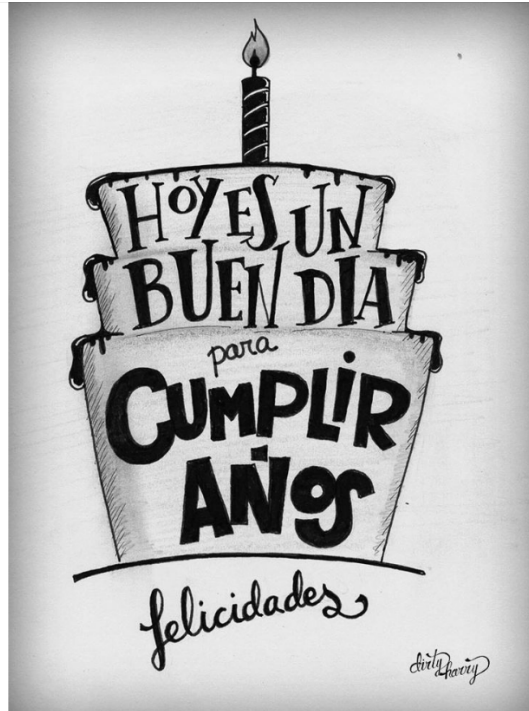 HOY ES UN
BUEN DÍA
para
CUMPLIR
AÑOS
felicidades
dirty
harry